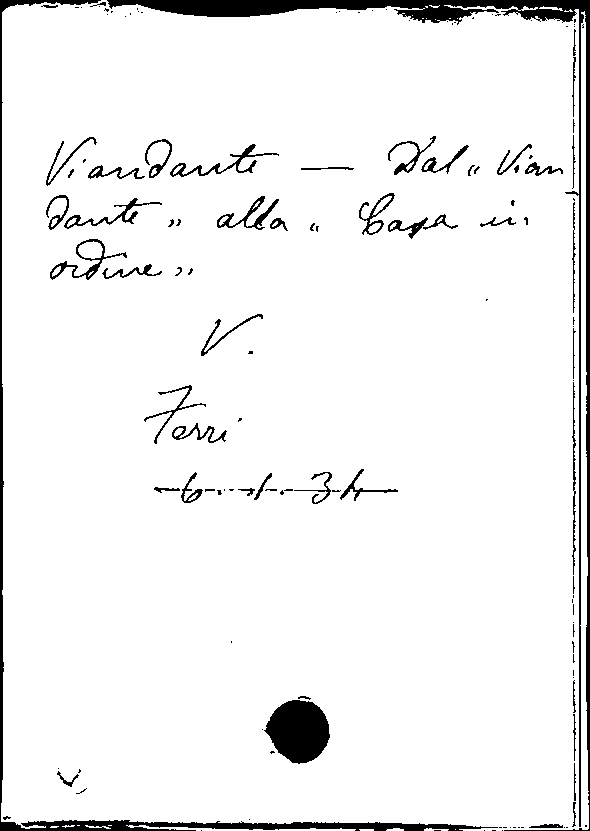 Viandante — Dal „ Vian
dante „ alla „ Casa in
ordine „
V.
Ferri
6. 1. 34